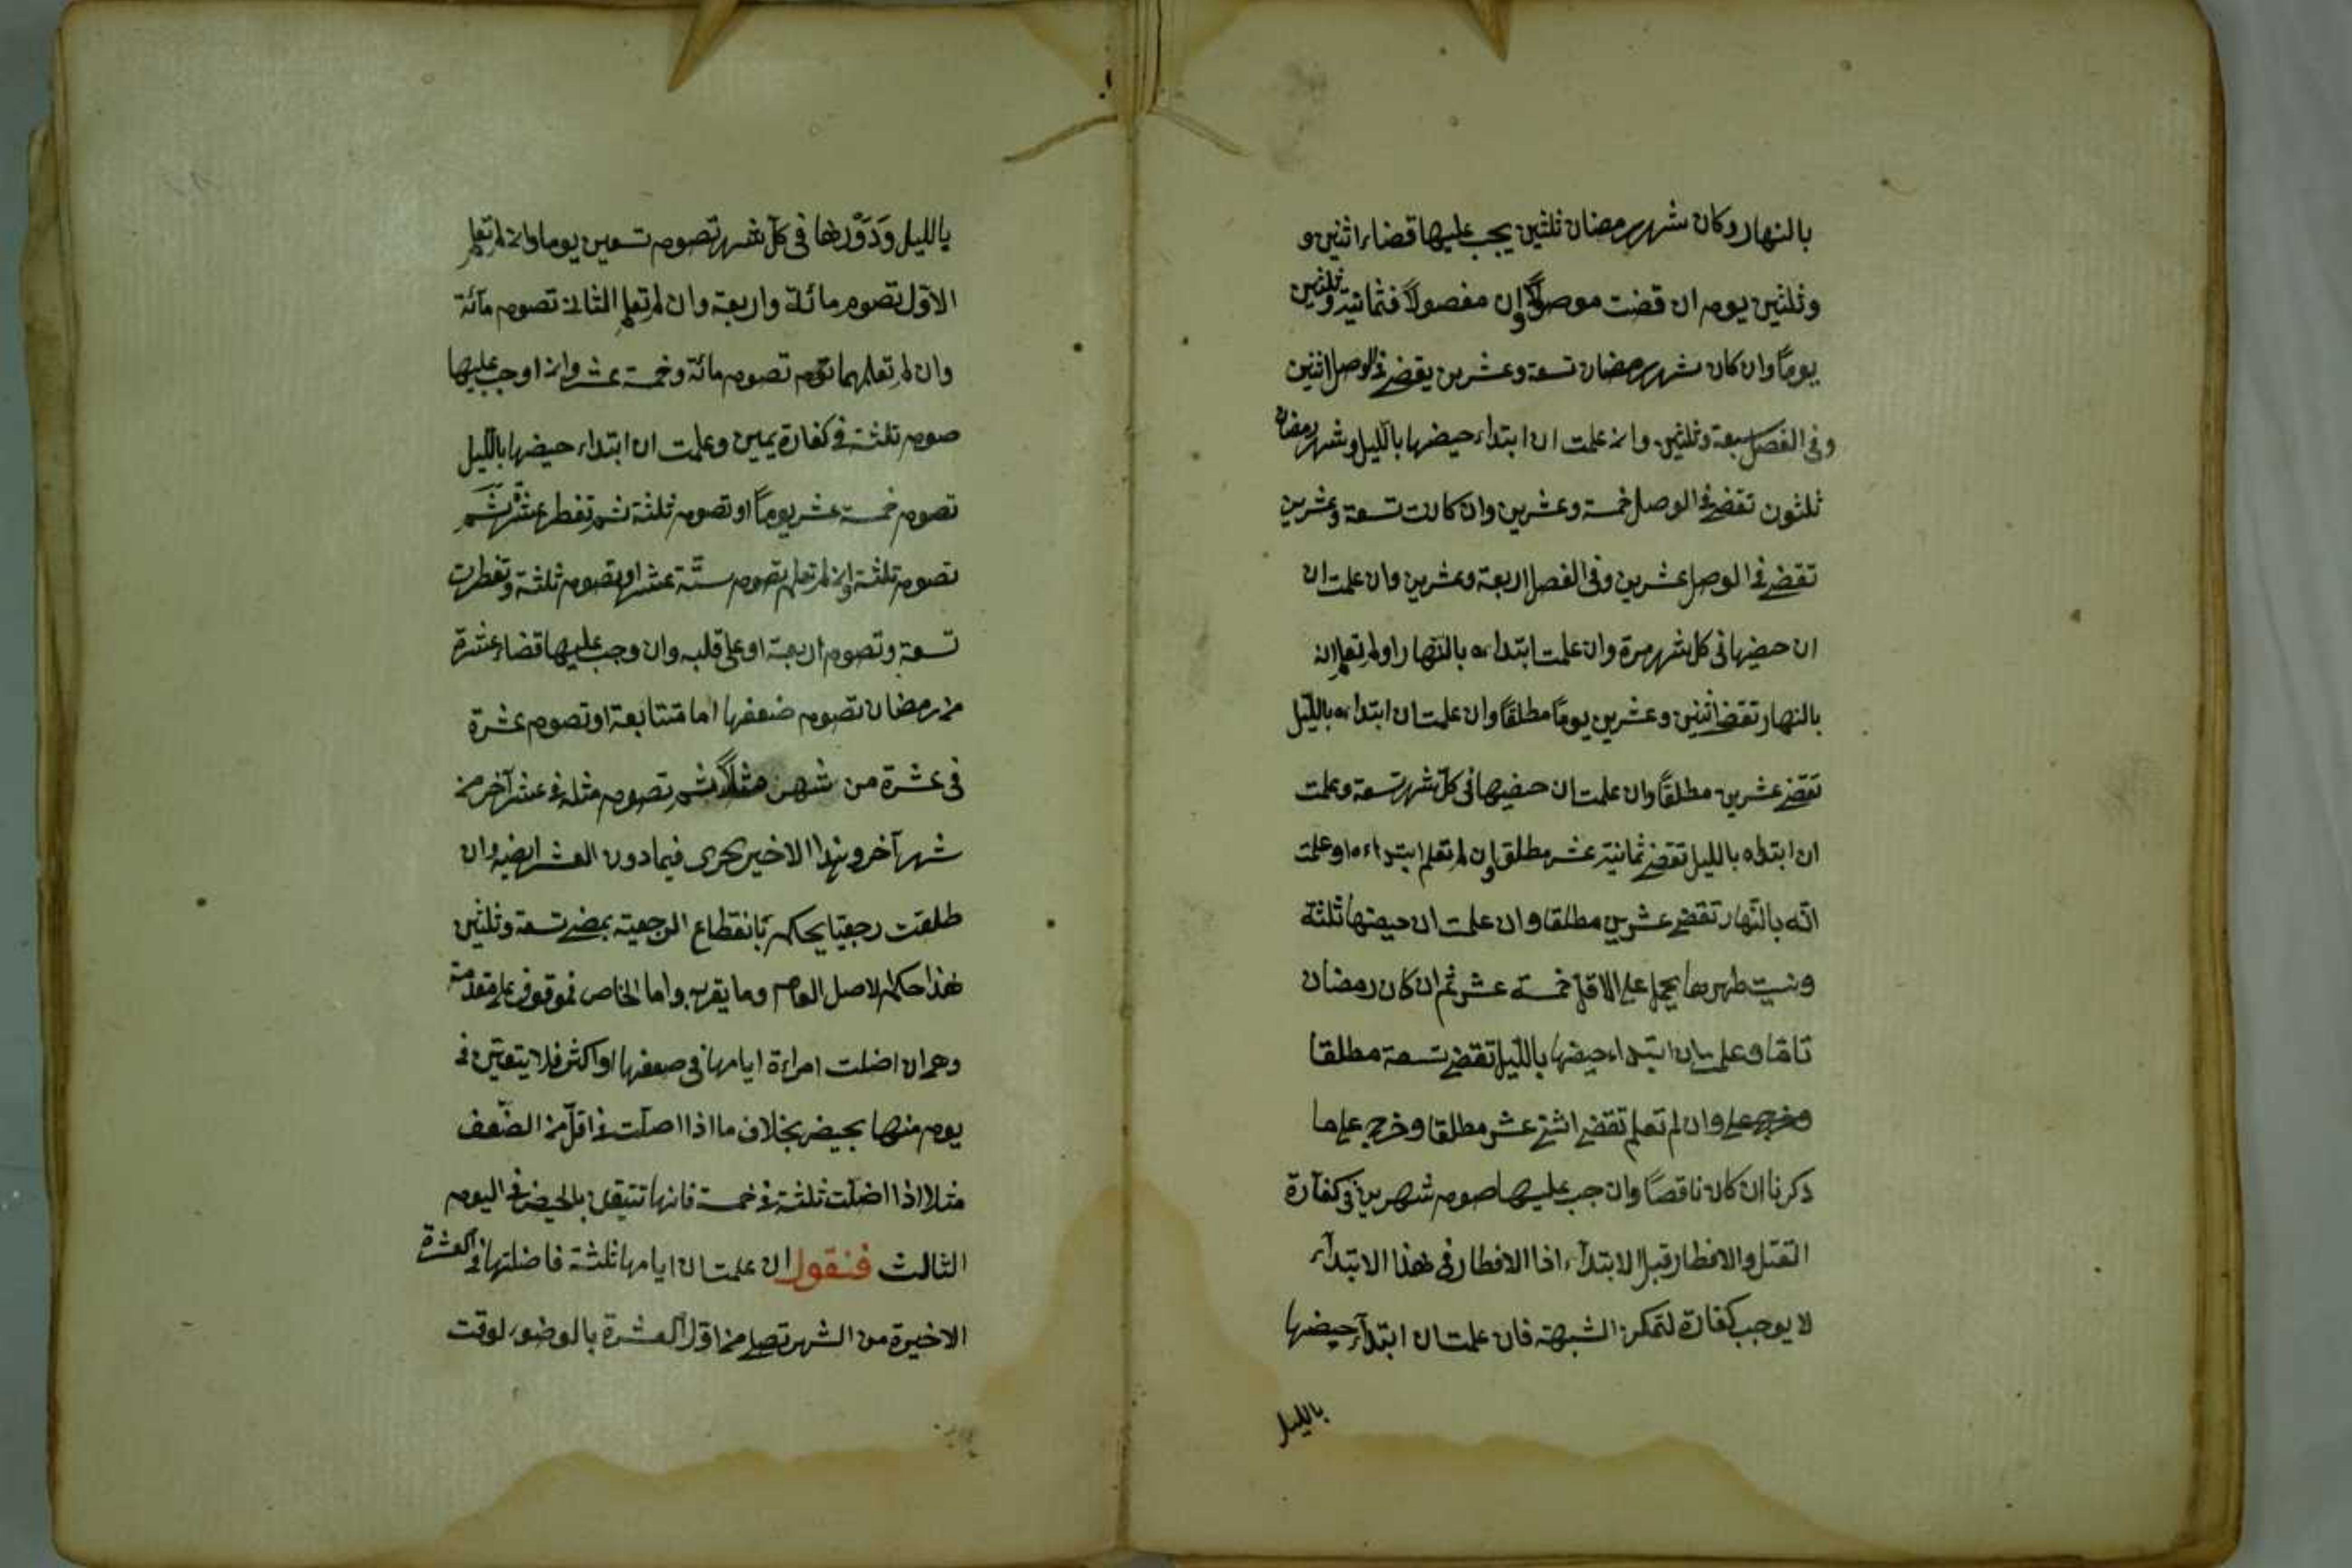 بالنهار وكان شهر رمضان ثلثين يجب عليها قضاء اثنين و
وثلثين يوم ان قضت موصولا وان مفصولاً فثمانية وثلثين
يوماً وان كان شهر رمضان تسعة وعشرين يقضي في الوصل اثنين
وفي الفصل سبعة وثلثين وان علمت ان ابتداء حيضها بالليل وشهر رمضان
ثلثون تقضي في الوصل خمسة وعشرين وان كانت تسعة وعشرين
تقضي في الوصل عشرين وفي الفصل اربعة وعشرين وان علمت ان
ان حيضها في كل شهر مرة وان علمت ابتداءه بالنهار او لم تعلم انه
بالنهار تقضي اثنين وعشرين يوماً مطلقاً وان علمت ان ابتداءه بالليل
تقضي عشرين مطلقاً وان علمت ان حيضها في كل شهر تسعة وعلمت
ان ابتداه بالليل تقضي ثمانية عشر مطلقا وان لم تعلم ابتداءه او علمت
انه بالنهار تقضي عشرين مطلقا وان علمت ان حيضها ثلثة
ونسيت طهرها يحمل على الاقل خمسة عشر ثم ان كان رمضان
تاما وعلمت ان ابتداء حيضها بالليل تقضي تسعة مطلقا
وخرج على وان لم تعلم تقضي اثني عشر مطلقا وخرج على ما
ذكرنا ان كان ناقصاً وان جب عليها صوم شهرين في كفارة
القتل والافطار قبل الابتداء اذا الافطار في هذا الابتداء
لا يوجب كفارة لتمكن الشبهة فان علمت ان ابتداء حيضها
بالليل
بالليل ودورها في كل شهر تصوم تسعين يوما وان لم تعلم
الاول تصوم مائة واربعة وان لم تعلم الثاني تصوم مائة
وان لم تعلمهما تصوم مائة وخمسة عشر وان اوجب عليها
صوم ثلثة في كفارة يمين وعلمت ان ابتداء حيضها بالليل
تصوم خمسة عشر يوماً او تصوم ثلثة ثم تفطر عشر ثم
تصوم ثلثة وان لم تعلم تصوم ستة عشر او تصوم ثلثة وتفطرت
تسعة وتصوم اربعة او على قلبه وان وجب عليها قضاء عشرة
من رمضان تصوم ضعفها اما متتابعة او تصوم عشرة
في عشرة من شهر مثلاً ثم تصوم مثله في عشر آخر من
شهر آخر وهذا الاخير يجرى فيما دون العشر ايضا وان
طلقت رجعيا يحكم بانقطاع الرجعية بمضي تسعة وثلثين
هذا حكم الاصل العام وما يقربه واما الخاص فموقوف على مقدمة
وهي ان اضلت امراءة ايامها في ضعفها او اكثر فلا يتعين في
يوم منها بحيض بخلاف ما اذا اصلت في اقل من الضعف
مثلا اذا اضلت ثلثة في خمسة فانها تتيقن بالحيض في اليوم
الثالث فنقول ان علمت ان ايامها ثلثة فاضلتها في العشرة
الاخيرة من الشهر تصلي من اول العشرة بالوضوء لوقت